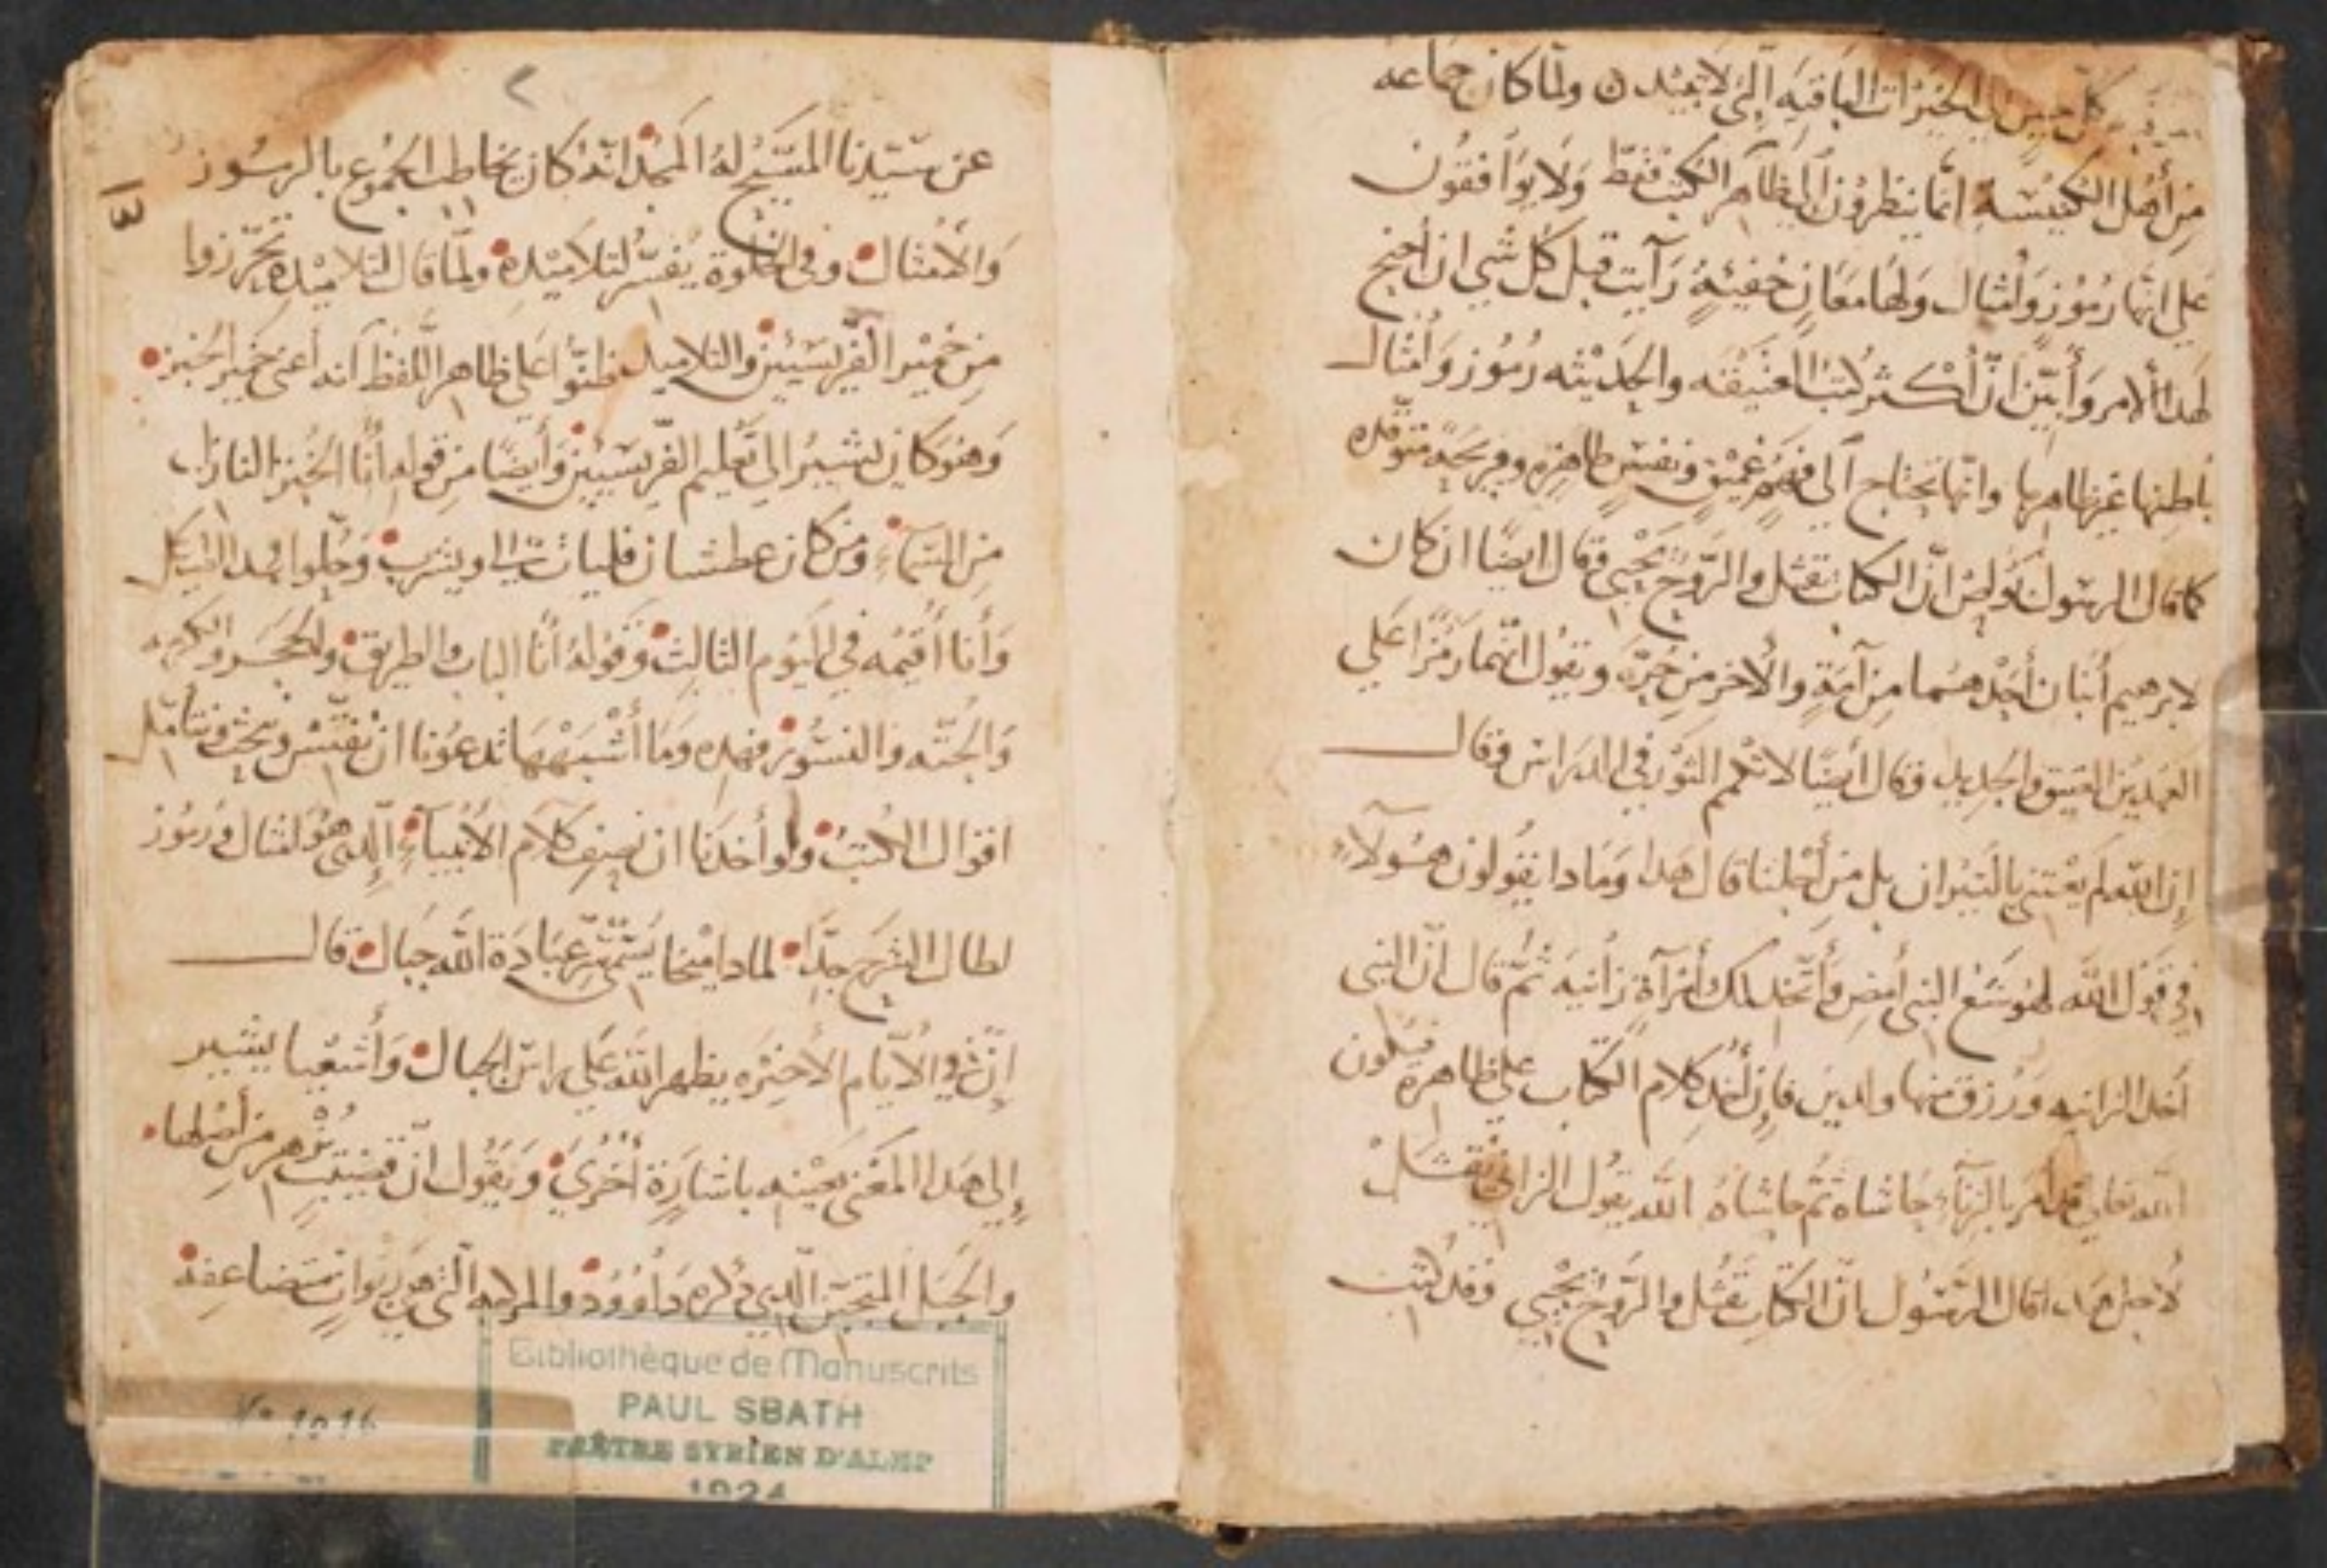 كل حين الى الخيرات الباقيه التي لا تبيد ولما كان جماعه
من أهل الكنيسة انما ينظرون الي ظاهر الكتب فقط ولا يوافقون
علي انها رموز وأمثال ولها معان خفيه رأيت قبل كل شي ان أحتج
لهدا الامر وأبين ان أكثر كتب العتيقه والحديثه رموز وأمثال
باطنها غير ظاهرها وانها تحتاج الي فهم عميق ونفس طاهره وقريحه متوقده
كما قال الرسول بولص ان الكتاب يقتل والروح يحيي وقال ايضا ان كان
لابرهيم أبنان أحدهما من آمة والاخر من حرة ويقول انهما رمزا علي
العهدين العتيق والجديد وقال أيضا لا تكمم الثور في الدراس وقال
إن الله لم يعتني بالثيران بل من أجلنا قال هدا وما دا يقولون هولآء
في قول الله لهوشع النبي أمض وأتخد لك أمرآة زانيه ثم قال ان النبي
أخد الزانيه ورزق منها ولدين فإن أخد كلام الكتاب علي ظاهره فيكون
الله تعالي قد أمر بالزنآء حاشاه ثم حاشاه الله يقول الزاني يقتل
لاجل هدا قال الرسول بان الكتاب يقتل والروح يحيي وقد كتب
عن سيدنا المسيح له المجد انه كان يخاطب الجموع بالرموز
والأمثال وفي الخلوة يفسر لتلاميده ولما قال لتلاميده تحرزوا
من خمير الفريسيين والتلاميد ظنوا علي ظاهر اللفظ انه أعني خمير الخبز
وهو كان يشير الي تعليم الفريسيين وأيضا من قوله أنا الخبز النازل
من السمآء ومن كان عطشان فليات الي ويشرب وحلوا هدا الهيكل
وأنا أقيمه في اليوم الثالث وقوله أنا الباب والطريق والحجر والكرمه
والجنه والنسور فهده وما أشبهها تدعونا ان نفتش ونبحث ونتأمل
اقوال الكتب ولو أخدنا ان نصف كلام الأنبيآء الدي هو امثال ورموز
لطال الشرح جدا لمادا ميخا يسمي عبادة الله جبال قال
إن في الايام الأخيره يظهر الله علي راس الجبال وأشعيا يشير
إلي هدا المعني بعينه باشارة أخري ويقول ان قضيب يزهر من أصلها
والجبل المتجبن الدي دكره داوود
Bibliothèque de Manuscrits
PAUL SBATH
PRÊTRE SYRIEN D'ALEP
1924